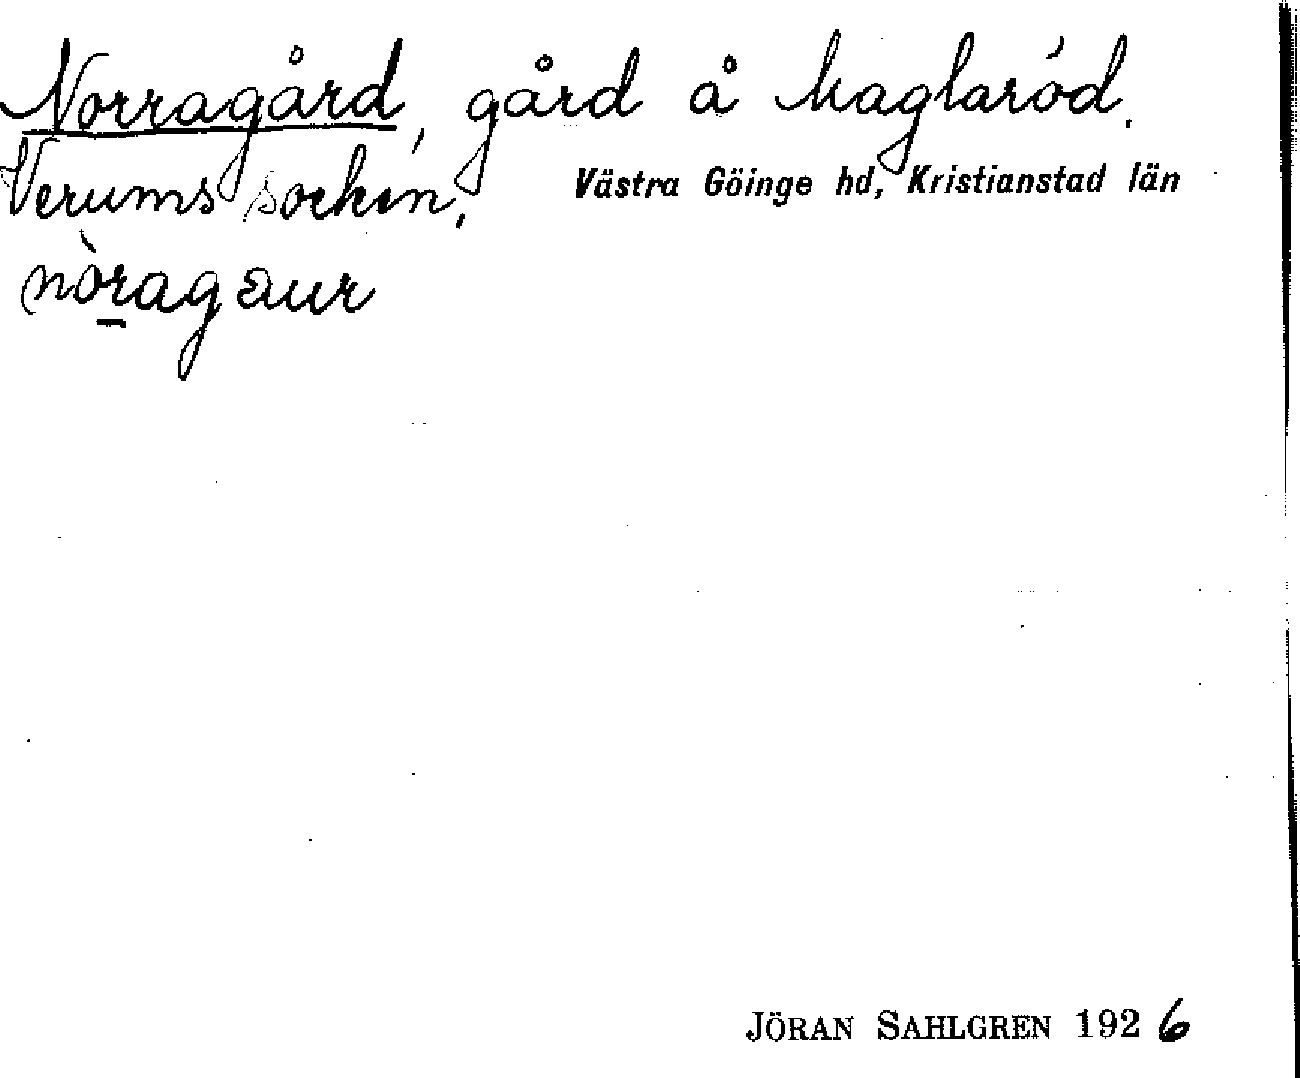 Norragård, gård å Maglaröd.
Verums socken, Västra Göinge hd, Kristianstad län
nòragaur
JÖRAN SAHLGREN 1926